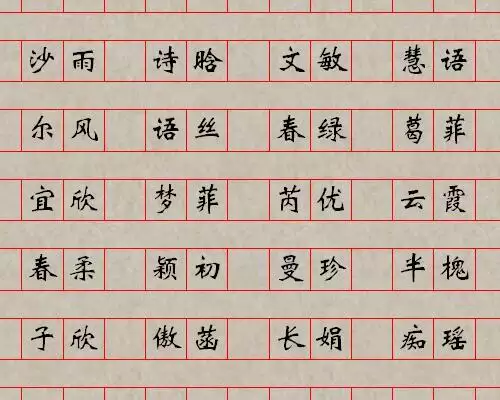 沙雨 诗晗 文敏 慧语
尔风 语丝 春绿 葛菲
宜欣 梦菲 芮优 云霞
春柔 颖初 曼珍 半槐
子欣 傲菡 长娟 痴瑶